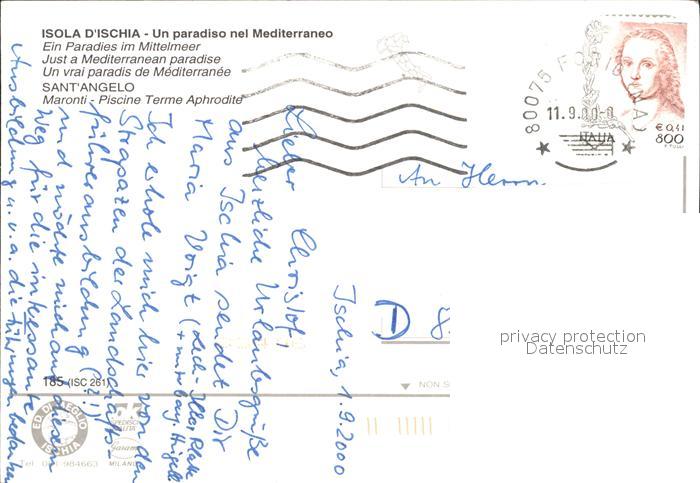 ISOLA D'ISCHIA - Un paradiso nel Mediterraneo
Ein Paradies im Mittelmeer
Just a Mediterranean paradise
Un vrai paradis de Méditerranée
SANT'ANGELO
Maronti - Piscine Terme Aphrodite
80075 FORIO (NA)
11.9.00
ITALIA
€ 0,41
800
An Herrn
D 8
privacy protection
Datenschutz
Ischia, 1.9.2000
Lieber Christof
herzliche Urlaubsgrüße
aus Ischia sendet Dir
Maria Voigt (Lech-Iller Platte
Ich erhole mich hier von den
Strapazen der Landschafts-
führerausbildung (?!)
und möchte mich auf diesem
Weg für die interessante
Ausbildung u.v.a. die Führungen bedanken
185 (ISC 261)
NON S
ISCHIA
Tel. 081 984663
MILANO